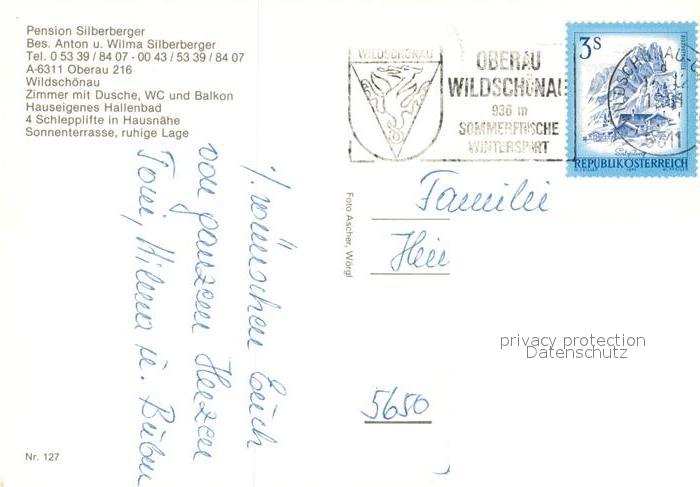 Pension Silberberger
Bes. Anton u. Wilma Silberberger
Tel. 0 53 39 / 84 07 - 00 43 / 53 39 / 84 07
A-6311 Oberau 216
Wildschönau
Zimmer mit Dusche, WC und Balkon
Hauseigenes Hallenbad
4 Schlepplifte in Hausnähe
Sonnenterrasse, ruhige Lage
wünschen Euch
von ganzem Herzen
Toni, Wilma u. Buben
Nr. 127
Foto Ascher, Wörgl
WILDSCHÖNAU
OBERAU
WILDSCHÖNAU
936 m
SOMMERFRISCHE
WINTERSPORT
3S
WILDSCHÖNAU-O
6311
REPUBLIK ÖSTERREICH
Familie
5650
privacy protection
Datenschutz